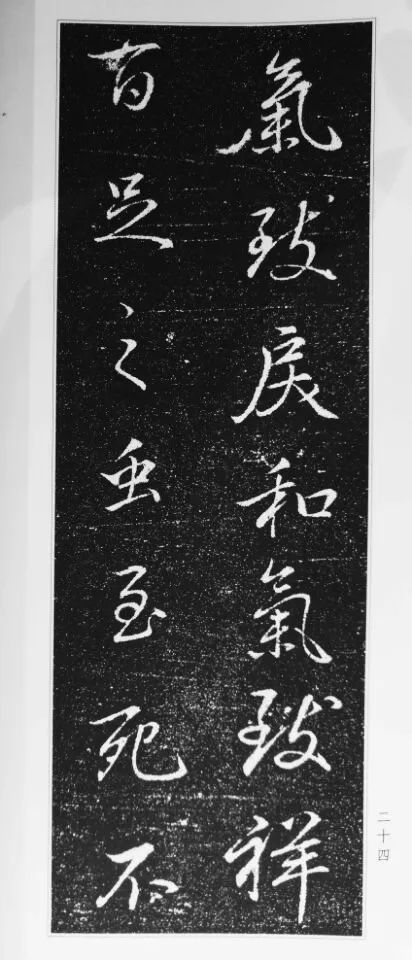 氣致戾和氣致祥
百足之虫至死不
二十四